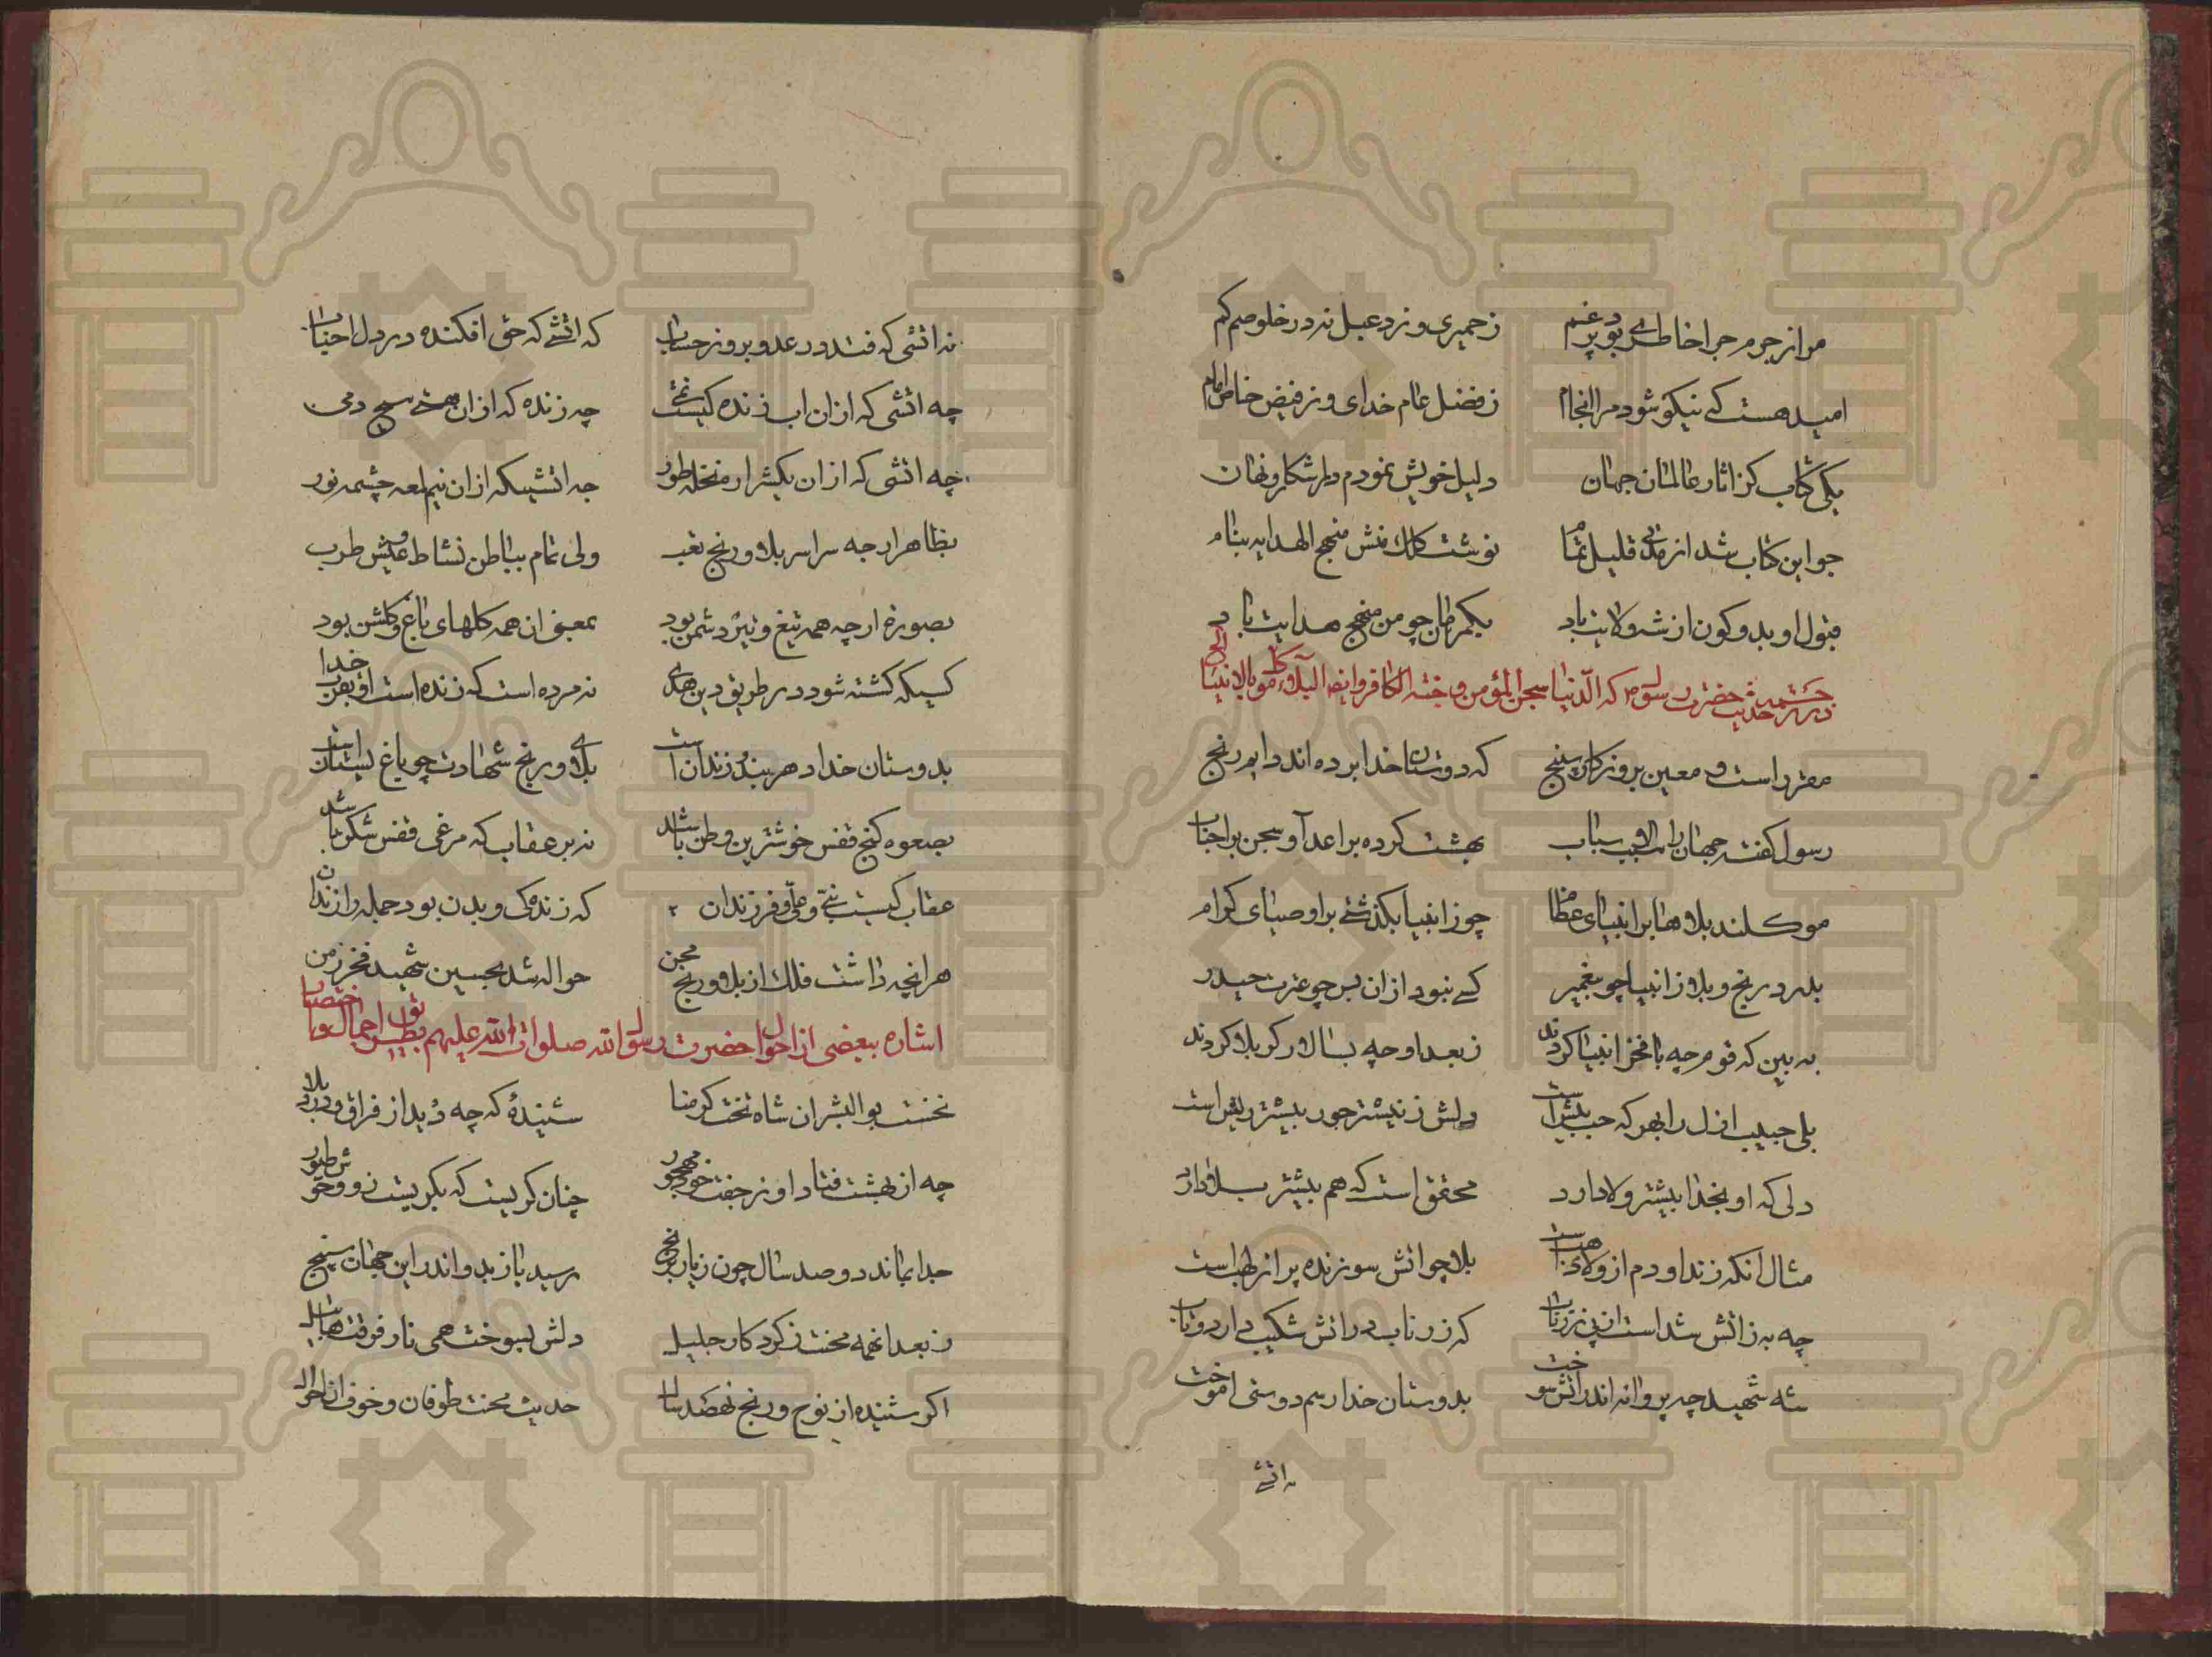 مرا ز جرم چرا خاطری بود پر غم ز حمیری و ز دعبل نه در خلوصم کم
امید هست که نیکو شود مرا انجام ز فضل عام خدای و ز فیض خاص امام
یکی کتاب کز اثار عالمان جهان دلیل خویش نمودم در اشکار و نهان
چو این کتاب شد از مدتی قلیل تمام نوشت کلک منش منهج الهدایه بنام
قبول او بدو کون از شه ولایت باد بگمرهان چو من منهج هدایت باد
در ترجمه حدیث حضرت رسول ص که الدنیا سجن المؤمن و جنة الکافر و ایضا البلاء موکل بالانبیا الخ
مقرر است و معین بروزکار سپنج که دوستان خدا برده اند دایم رنج
رسول کفته جهان را سبب الاسباب بهشت کرده بر اعدآ و سجن بر احباب
موکلند بلاها بر انبیای عظام چو ز انبیا بکذشتی بر اوصیای کرام
بدرد و رنج و بلا ز انبیا چو پیغمبر کسی نبود از ان پس چو عترت حیدر
به بین که قوم چه با فخر انبیا کردند ز بعد او چه بسالار کربلا کردند
بلی حبیب ازل را بهر که حب بیش است دلش ز نیشتر جور بیشتر ریش است
دلی که او بخدا بیشتر ولا دارد محقق است که هم بیشتر بلا دارد
مثال انکه زند او دم از ولای بلا چو اتش سوزنده پر از لهب است
چه به ز اتش شد است از پی زر ناب که زر ناب در اتش شکیب دارد و تاب
شه شهید چه پروانه اندر اتش سوخت بدوستان خدا رسم دوستی اموخت
نه اتشی
نه اتشی که فتد در عدو بروز حساب که اتشی که حق افکنده در دل احباب
چه اتشی که از ان اب زنده کیست چه زنده که از ان مسیح دمی
چه اتشی که از ان یکشرار نخله طور چه اتشیکه از ان نیم لمعه چشمه نور
بظاهر ارچه سراسر بلا و رنج تعب ولی تمام بباطن نشاط و عیش طرب
بصورة ارچه همه تیغ و تیر دشمن بود بمعنی ان همه کلهای باغ و کلشن بود
کسیکه کشته شود در طریق دین هدی نه مرده است که زنده است او بقرب خدا
بدوستان خدا دهر بند و زندان است بلای و رنج شهادت چو باغ بستان است
بصعوه کنج قفس خوشترین وطن باشد نه بر عقاب که مرغی قفس شکن باشد
عقاب کیست نبی و علی و فرزندان که زندکی و بدن بود جمله را زندان
هر انچه داشت فلک از بلا و رنج محن حواله شد بحسین شهید فخر زمن
اشاره ببعضی از احوال حضرت رسول الله صلوات الله علیهم بطریق اجمال و اختصار
نخست بوالبشر ان شاه تخت کرمنا شنیدهٔ که چه دید از فراق و درد بلا
چه از بهشت فتاد او ز جفت خود مهجور چنان کریست که بکریست زو وحوش طیور
جدا بماند دو صد سال چون ز یار برنج رسید باز بدو اندر این جهان سپنج
ز بعد انهمه محنت نکرد کار جلیل دلش بسوخت همی نار فرقت هابیل
اکر شنیده از نوح و رنج نهصد سال حدیث محنت طوفان و خوف ان احوال